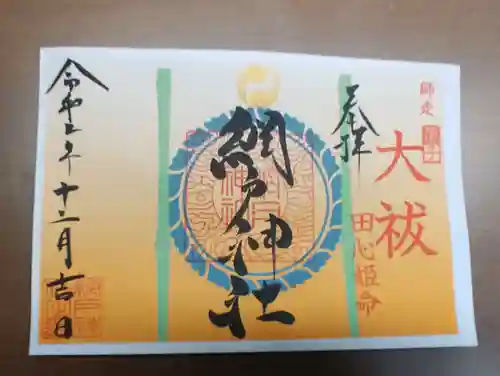 師走
大祓
田心姫命
奉拝
網戸神社
令和三年十二月吉日